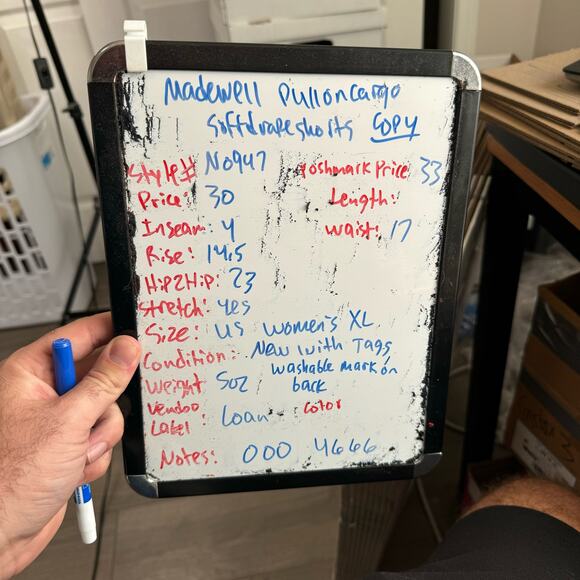 Madewell Pulloncargo
Softdrapeshorts COPY
Style# No947 Poshmark Price: 33
Price: 30 Length:
Inseam: 4 Waist: 17
Rise: 14.5
Hip2Hip: 23
Stretch: yes
Size: US Women's XL
Condition: New with Tags,
washable mark on
back
Weight 5oz
Vendoo Color
Label: Loan
Notes: 000 4666